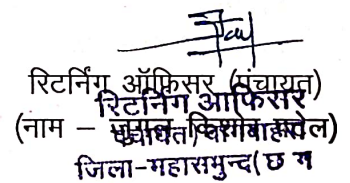 रिटर्निंग ऑफिसर (पंचायत)
रिटर्निंग आफिसर
(नाम – किशोर पटेल)
पंचायत) बागबाहरा
जिला-महासमुन्द (छ ग